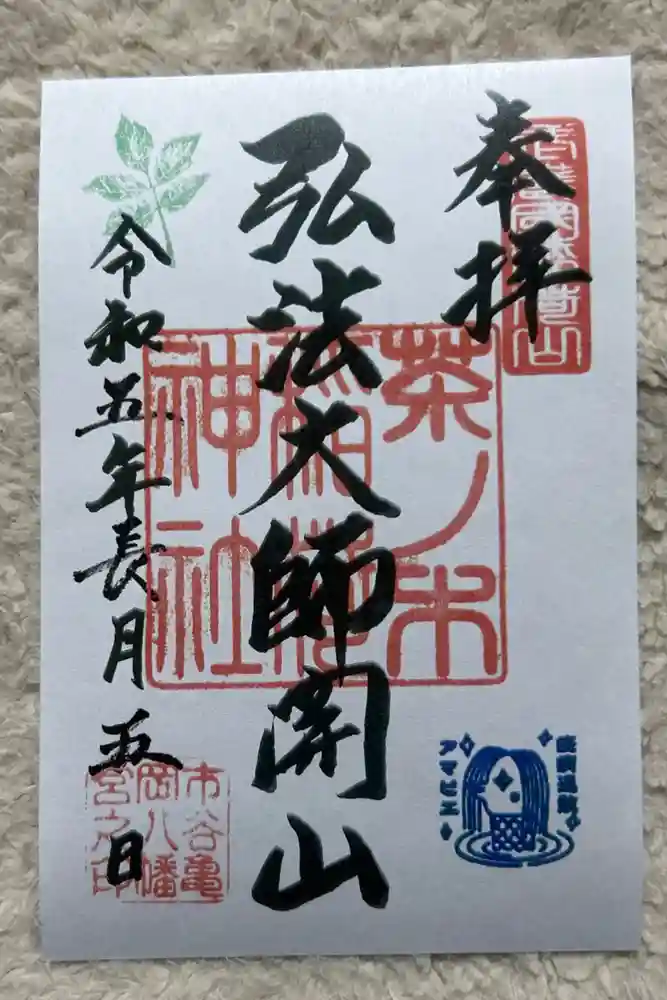 奉拝
弘法大師開山
茶ノ木
稲荷
神社
令和五年長月五日
市谷亀
岡八幡
宮之印
疫病退散
アマビエ